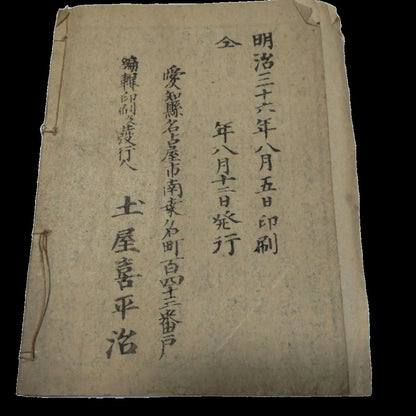 明治三十六年八月五日印刷
仝年八月十二日発行
愛知縣名古屋市南桑名町百四十三番戸
編輯印刷及發行人 土屋喜平治